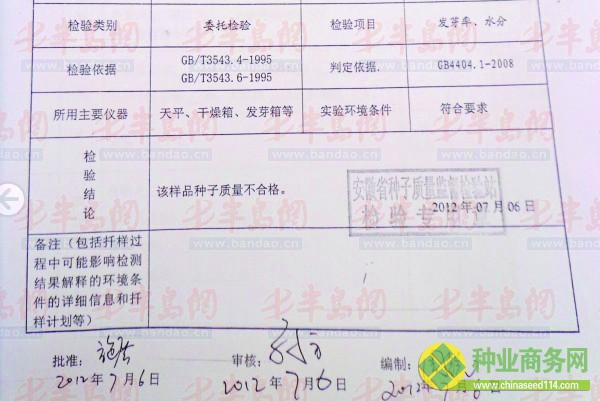 检验类别 委托检验 检验项目 发芽率、水分
检验依据 GB/T3543.4-1995 判定依据. GB4404.1-2008
GB/T3543.6-1995
所用主要仪器 天平、干燥箱、发芽箱等 实验环境条件 符合要求
检
验
结
论
该样品种子质量不合格。
安徽省种子质量监督检验站
检验专
2012年07月06日
备注（包括扦样过
程中可能影响检测
结果解释的环境条
件的详细信息和扦
样计划等）
批准： 审核： 编制：
2012年7月6日 2012年7月6日 2012年7月6日
半岛网
www.bandao.cn
种业商务网
www.chinaseed114.com